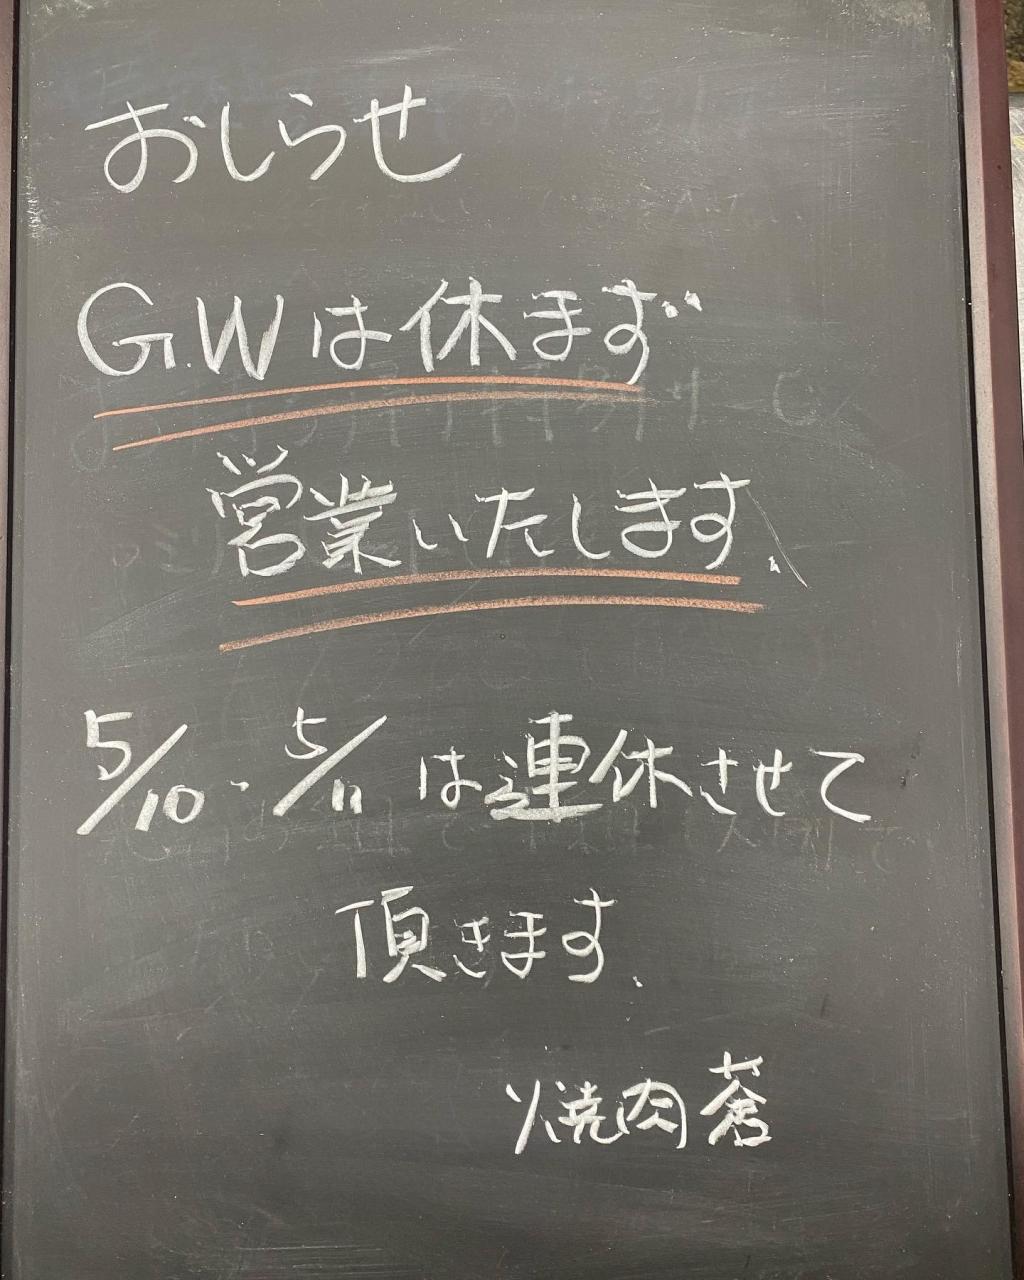 おしらせ
G.Wは休まず
営業いたします.
5/10・5/11は連休させて
頂きます.
焼肉蒼